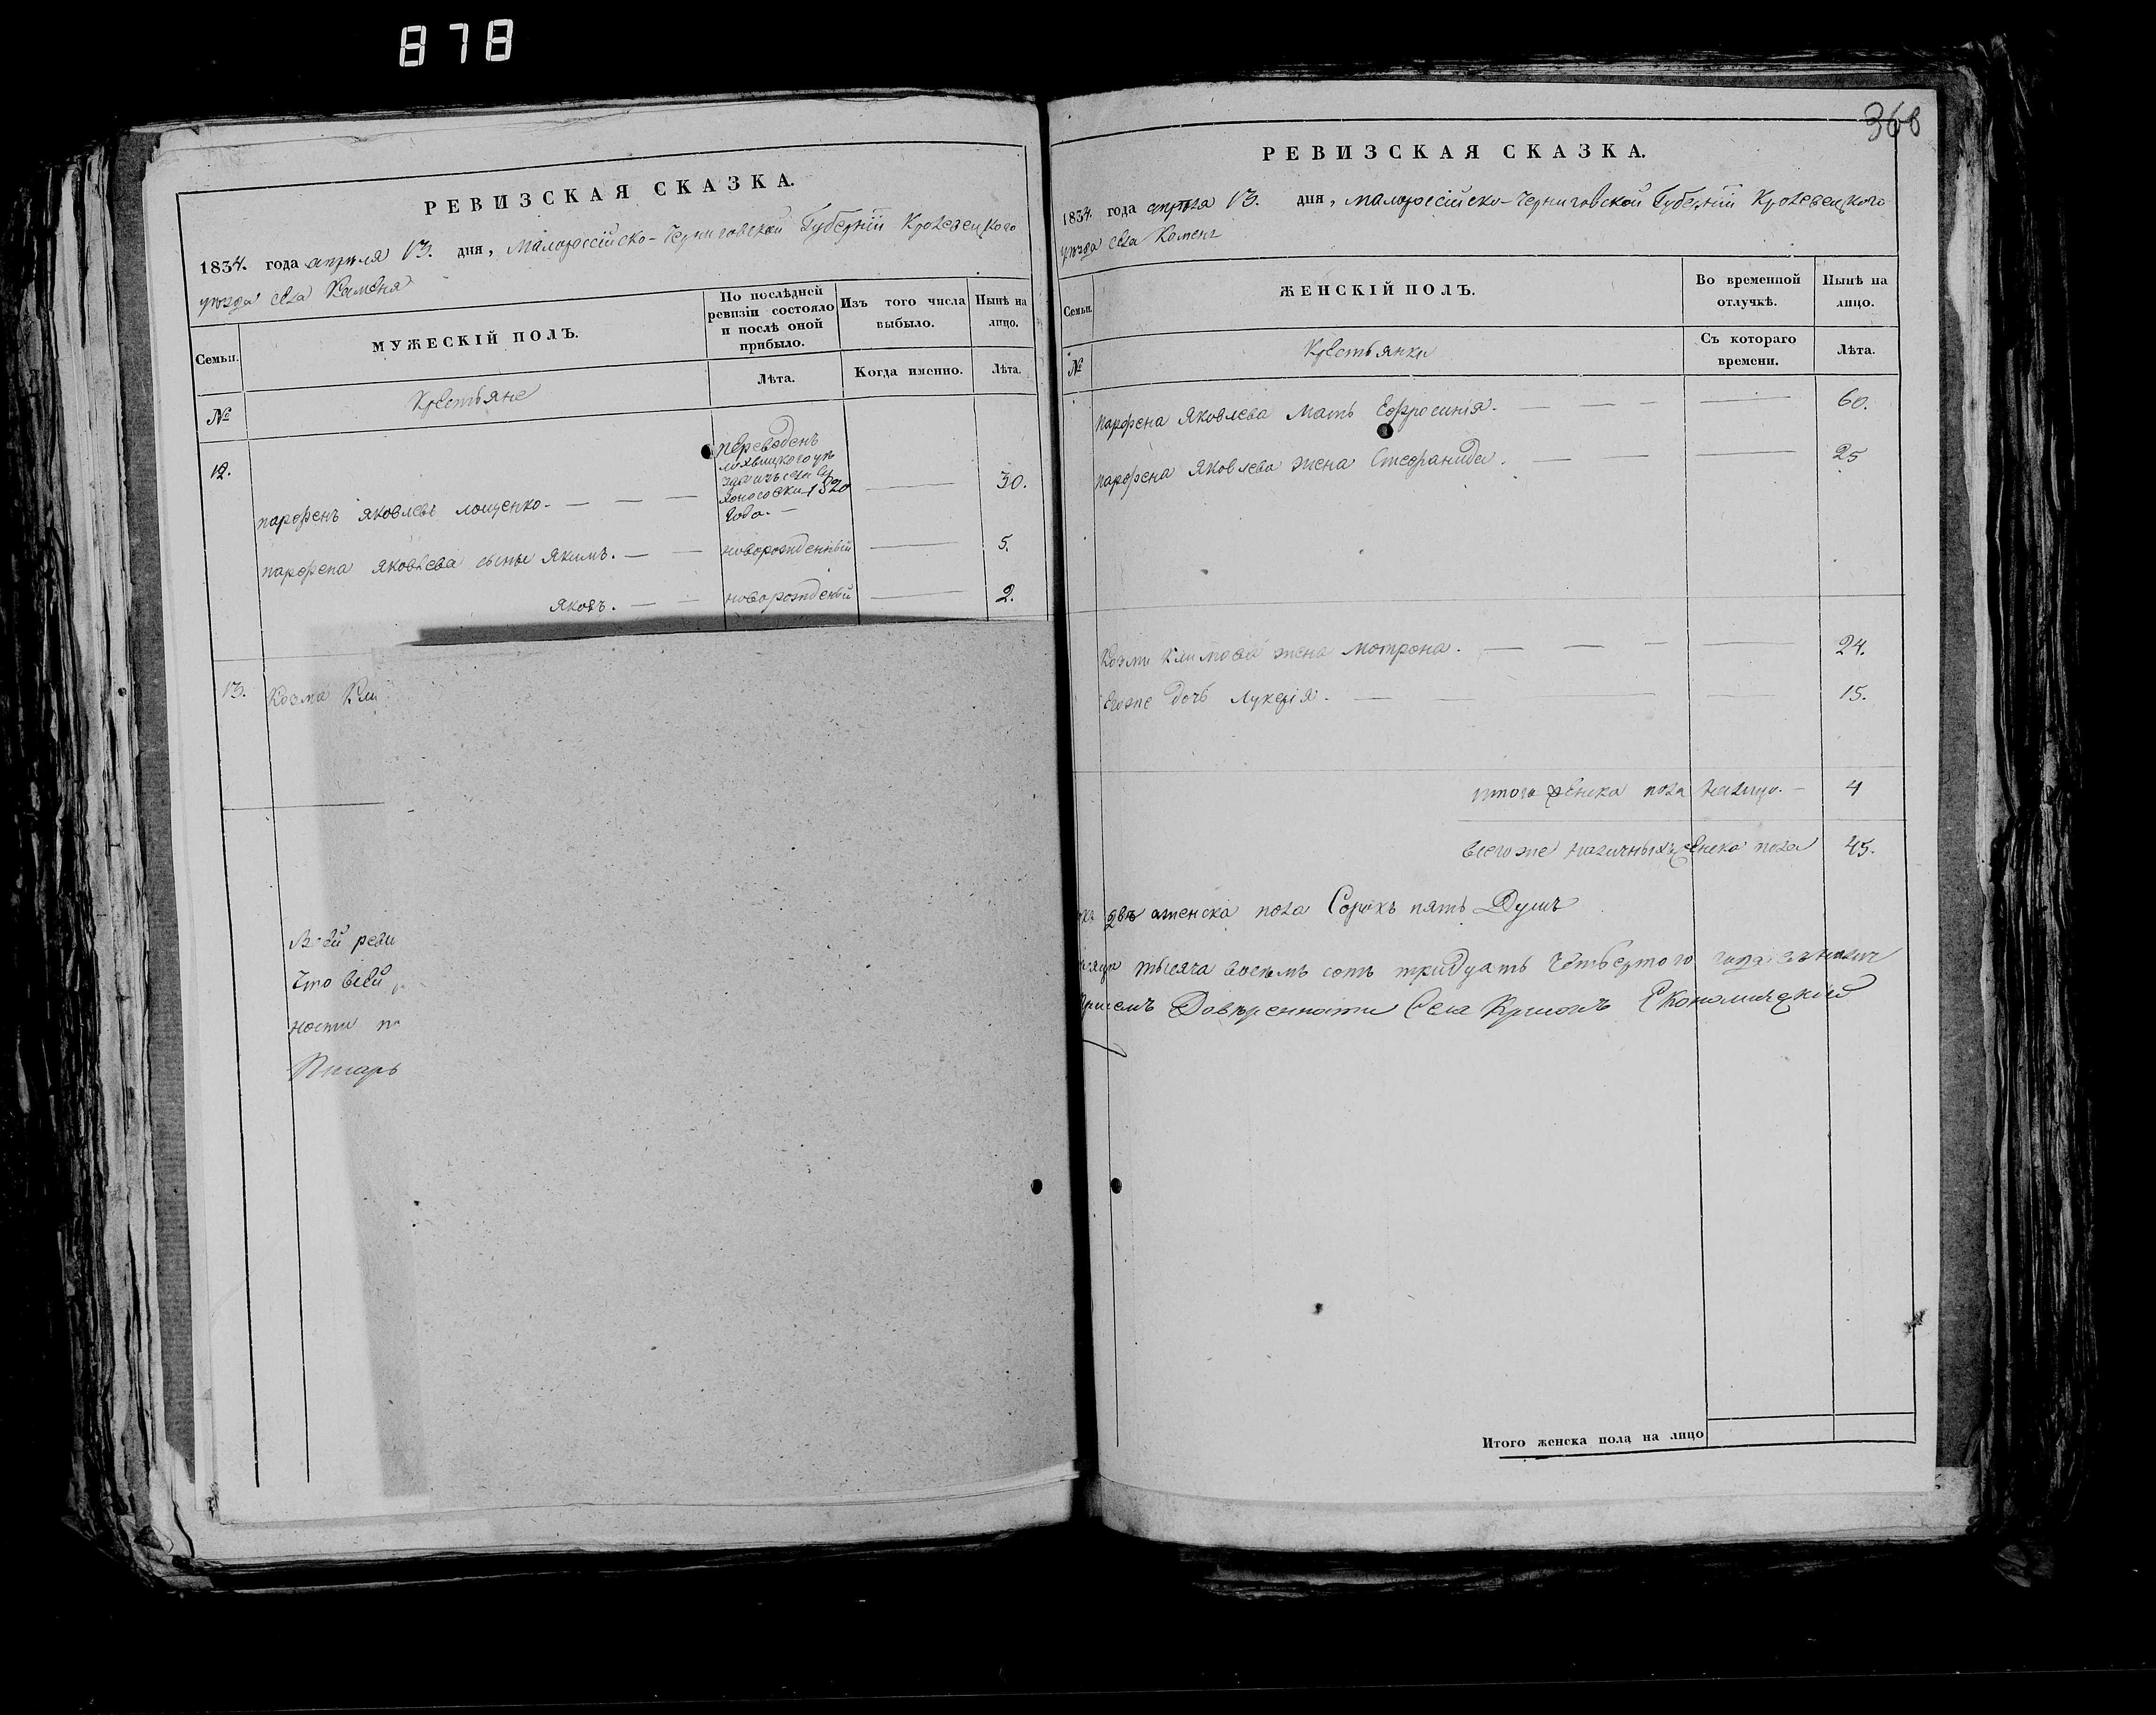 878
РЕВИЗСКАЯ СКАЗКА.
1834. года апреля 13. дня, Малороссійско-Черниговской Губерніи Кролевецкого
уезда села Каменя
Семьи. МУЖЕСКІЙ ПОЛЪ. По послѣдней ревизіи состояло и послѣ оной прибыло. Изъ того числа выбыло. Нынѣ на лицо.
№ Крестьяне Лѣта. Когда именно. Лѣта.
12. переведенъ
лохвицкого уѣ
1820
года.
парфенъ яковлевъ лощенко. 30.
парфена яковлева сыны якимъ. новорожденный 5.
яковъ. новорожденый 2.
13. Козма Кли
что всей
ности
Писарь
368
РЕВИЗСКАЯ СКАЗКА.
1834. года апреля 13. дня, малороссійско-черниговской Губерніи Кролевецкого
уезда села Каменя
Семьи. ЖЕНСКІЙ ПОЛЪ. Во временной отлучкѣ. Нынѣ на лицо.
№ Крестьянки Съ котораго времени. Лѣта.
парфена яковлева мать Ефросинія. 60.
парфена яковлева жена Стефанида. 25
Козми Климова жена мотрона. 24.
Егоже дочь лукерія. 15.
итого женска пола налицо. 4
всегоже наличныхъ женска пола 45.
двѣ аженска пола Сорокъ пять Душъ
тысяча восемъ сотъ тридцать четвертого года
Довѣренности Села Экономическій
Итого женска пола на лицо